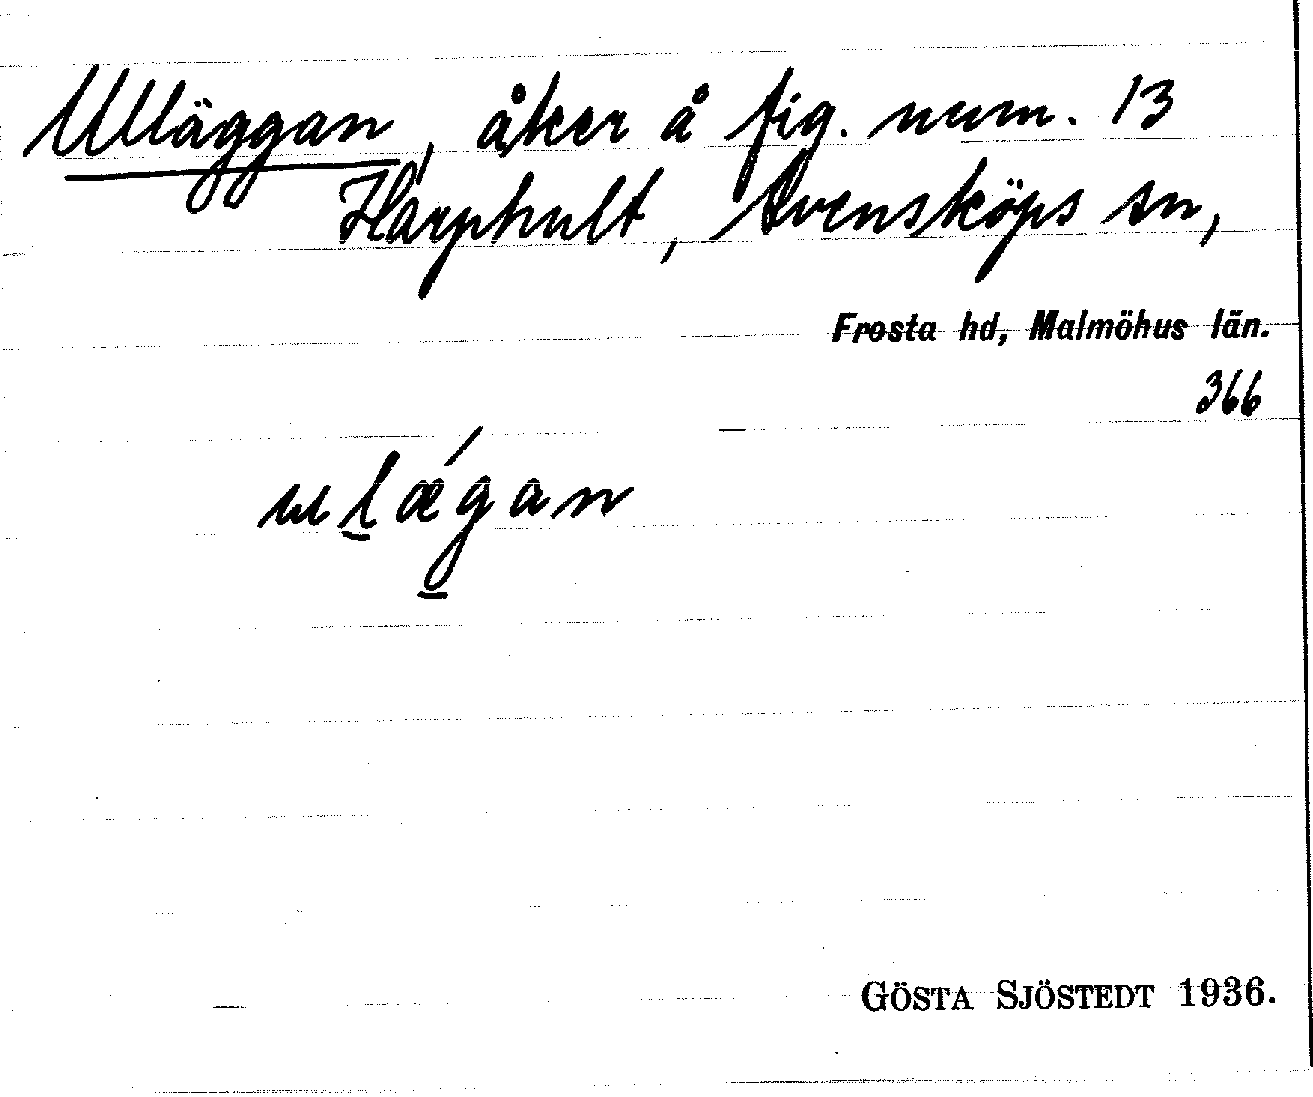 Ulläggan, åker å fig. num. 13
Harphult, Svensköps sn,
Frosta hd, Malmöhus län.
366
ulǽgan
GÖSTA SJÖSTEDT 1936.